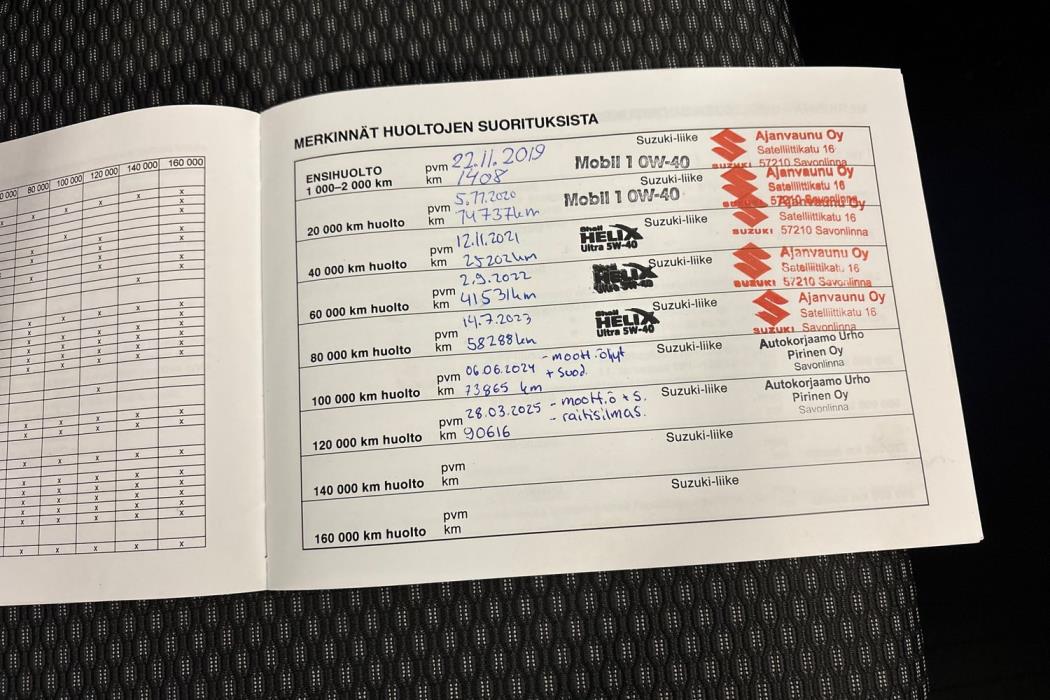 0 000 80 000 100 000 120 000 140 000 160 000
MERKINNÄT HUOLTOJEN SUORITUKSISTA
ENSIHUOLTO
1 000–2 000 km
pvm 22.11.2019
km 1408
Mobil 1 0W-40
Suzuki-liike
SUZUKI
Ajanvaunu Oy
Satelliittikatu 16
57210 Savonlinna
20 000 km huolto
pvm 5.11.2020
km 14737km
Mobil 1 0W-40
Suzuki-liike
Ajanvaunu Oy
Satelliittikatu 16
57210 Savonlinna
40 000 km huolto
pvm 12.11.2021
km 25202km
Shell
HELIX
Ultra 5W-40
Suzuki-liike
SUZUKI
Ajanvaunu Oy
Satelliittikatu 16
57210 Savonlinna
60 000 km huolto
pvm 2.9.2022
km 41531km
HELIX
Suzuki-liike
SUZUKI
Ajanvaunu Oy
Satelliittikatu 16
57210 Savonlinna
80 000 km huolto
pvm 14.7.2023
km 58288km
Shell
HELIX
Ultra 5W-40
Suzuki-liike
SUZUKI
Ajanvaunu Oy
Satelliittikatu 16
Savonlinna
100 000 km huolto
pvm 06.06.2024 - moott.öljyt
+ suod.
km 73865 km
Suzuki-liike
Autokorjaamo Urho
Pirinen Oy
Savonlinna
120 000 km huolto
pvm 28.03.2025 - moott.ö + s.
- raitisilmas.
km 90616
Suzuki-liike
Autokorjaamo Urho
Pirinen Oy
Savonlinna
140 000 km huolto
pvm
km
Suzuki-liike
160 000 km huolto
pvm
km
Suzuki-liike